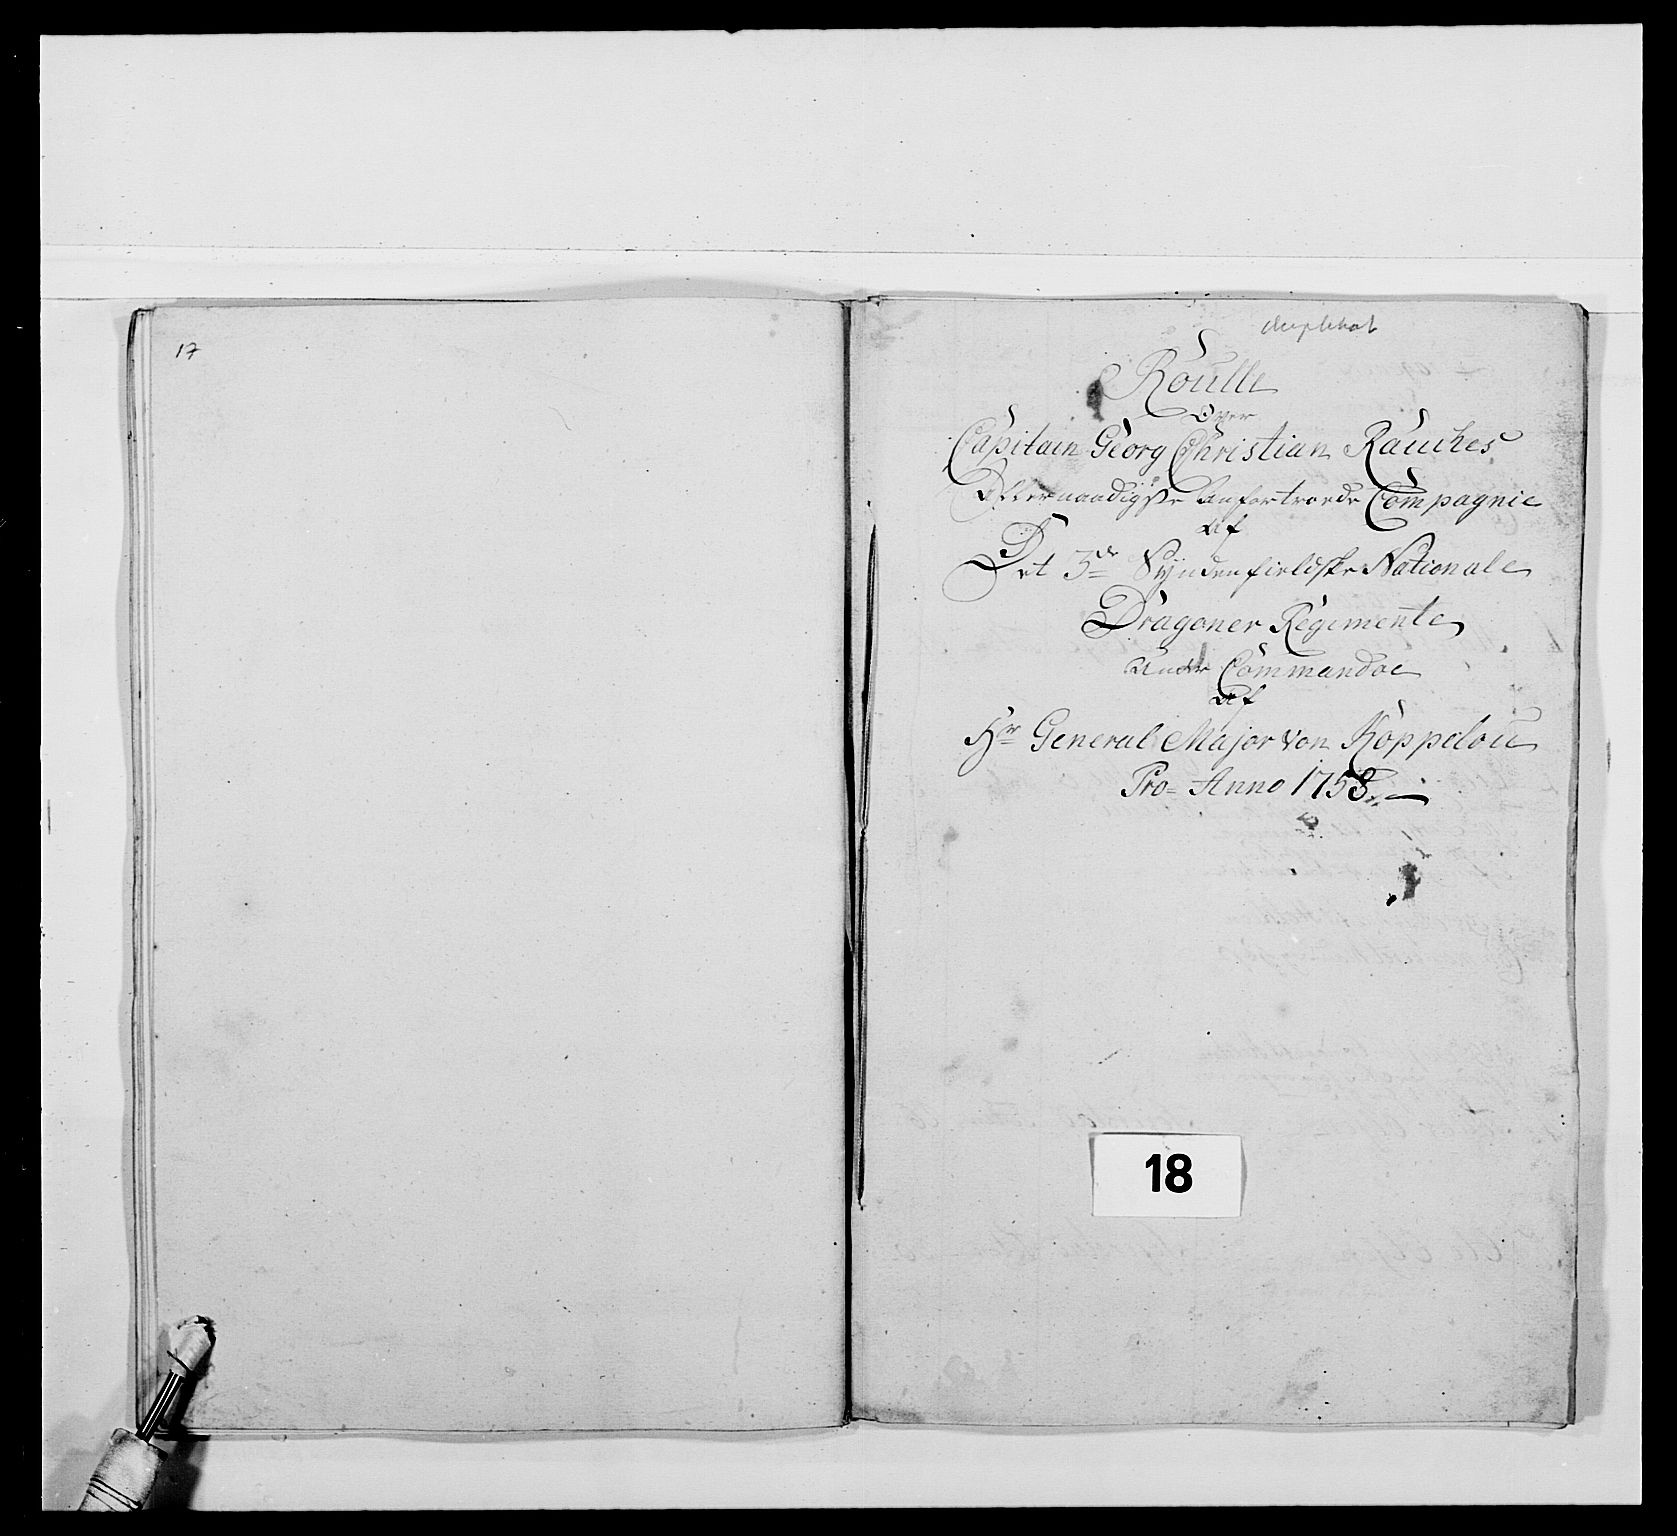 17
duplikat
Roulle
Over
Capitain Georg Christian Rauches
Allernaadigste Anfortroede Compagnie
Af
Det 3de Syndenfieldske Nationale
Dragoner Regimente
Under Commandoe
Af
Hr General Major von Köppelou
Pro Anno 1758
18